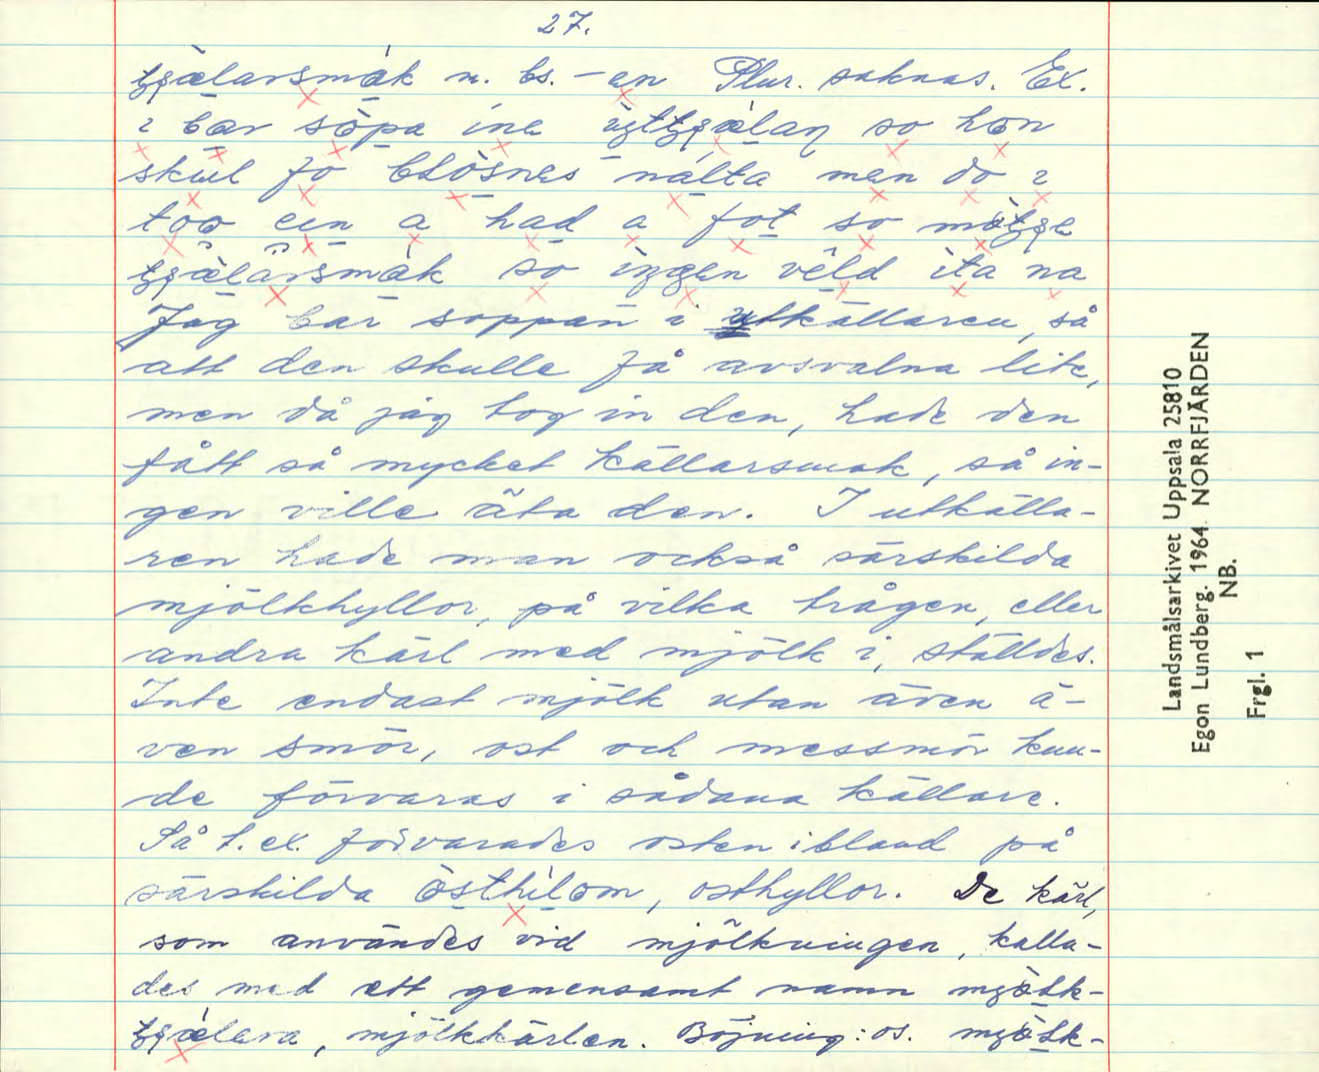 27.
n. bs. -en Plur. saknas. Ex.
bær söpa ina so hon
skul fo men do
too ein a had a fot so
so veld ita na
Jag bar soppan i utkällaren, så
att den skulle få avsvalna lite,
men då jag tog in den, hade den
fått så mycket källarsmak, så in-
gen ville äta den. I utkälla-
ren hade man också särskilda
mjölkhyllor, på vilka trågen, eller
andra kärl med mjölk i, ställdes.
Inte endast mjölk utan även ä-
ven smör, ost och messmör kun-
de förvaras i sådana källare.
Så t.ex. förvarades osten ibland på
särskilda östhilom, osthyllor. De kärl,
som användes vid mjölkningen, kalla-
des med ett gemensamt namn
mjölkkärlen. Böjning: os.
Landsmålsarkivet Uppsala 25810
Egon Lundberg. 1964. NORRFJÄRDEN
NB.
Frgl. 1